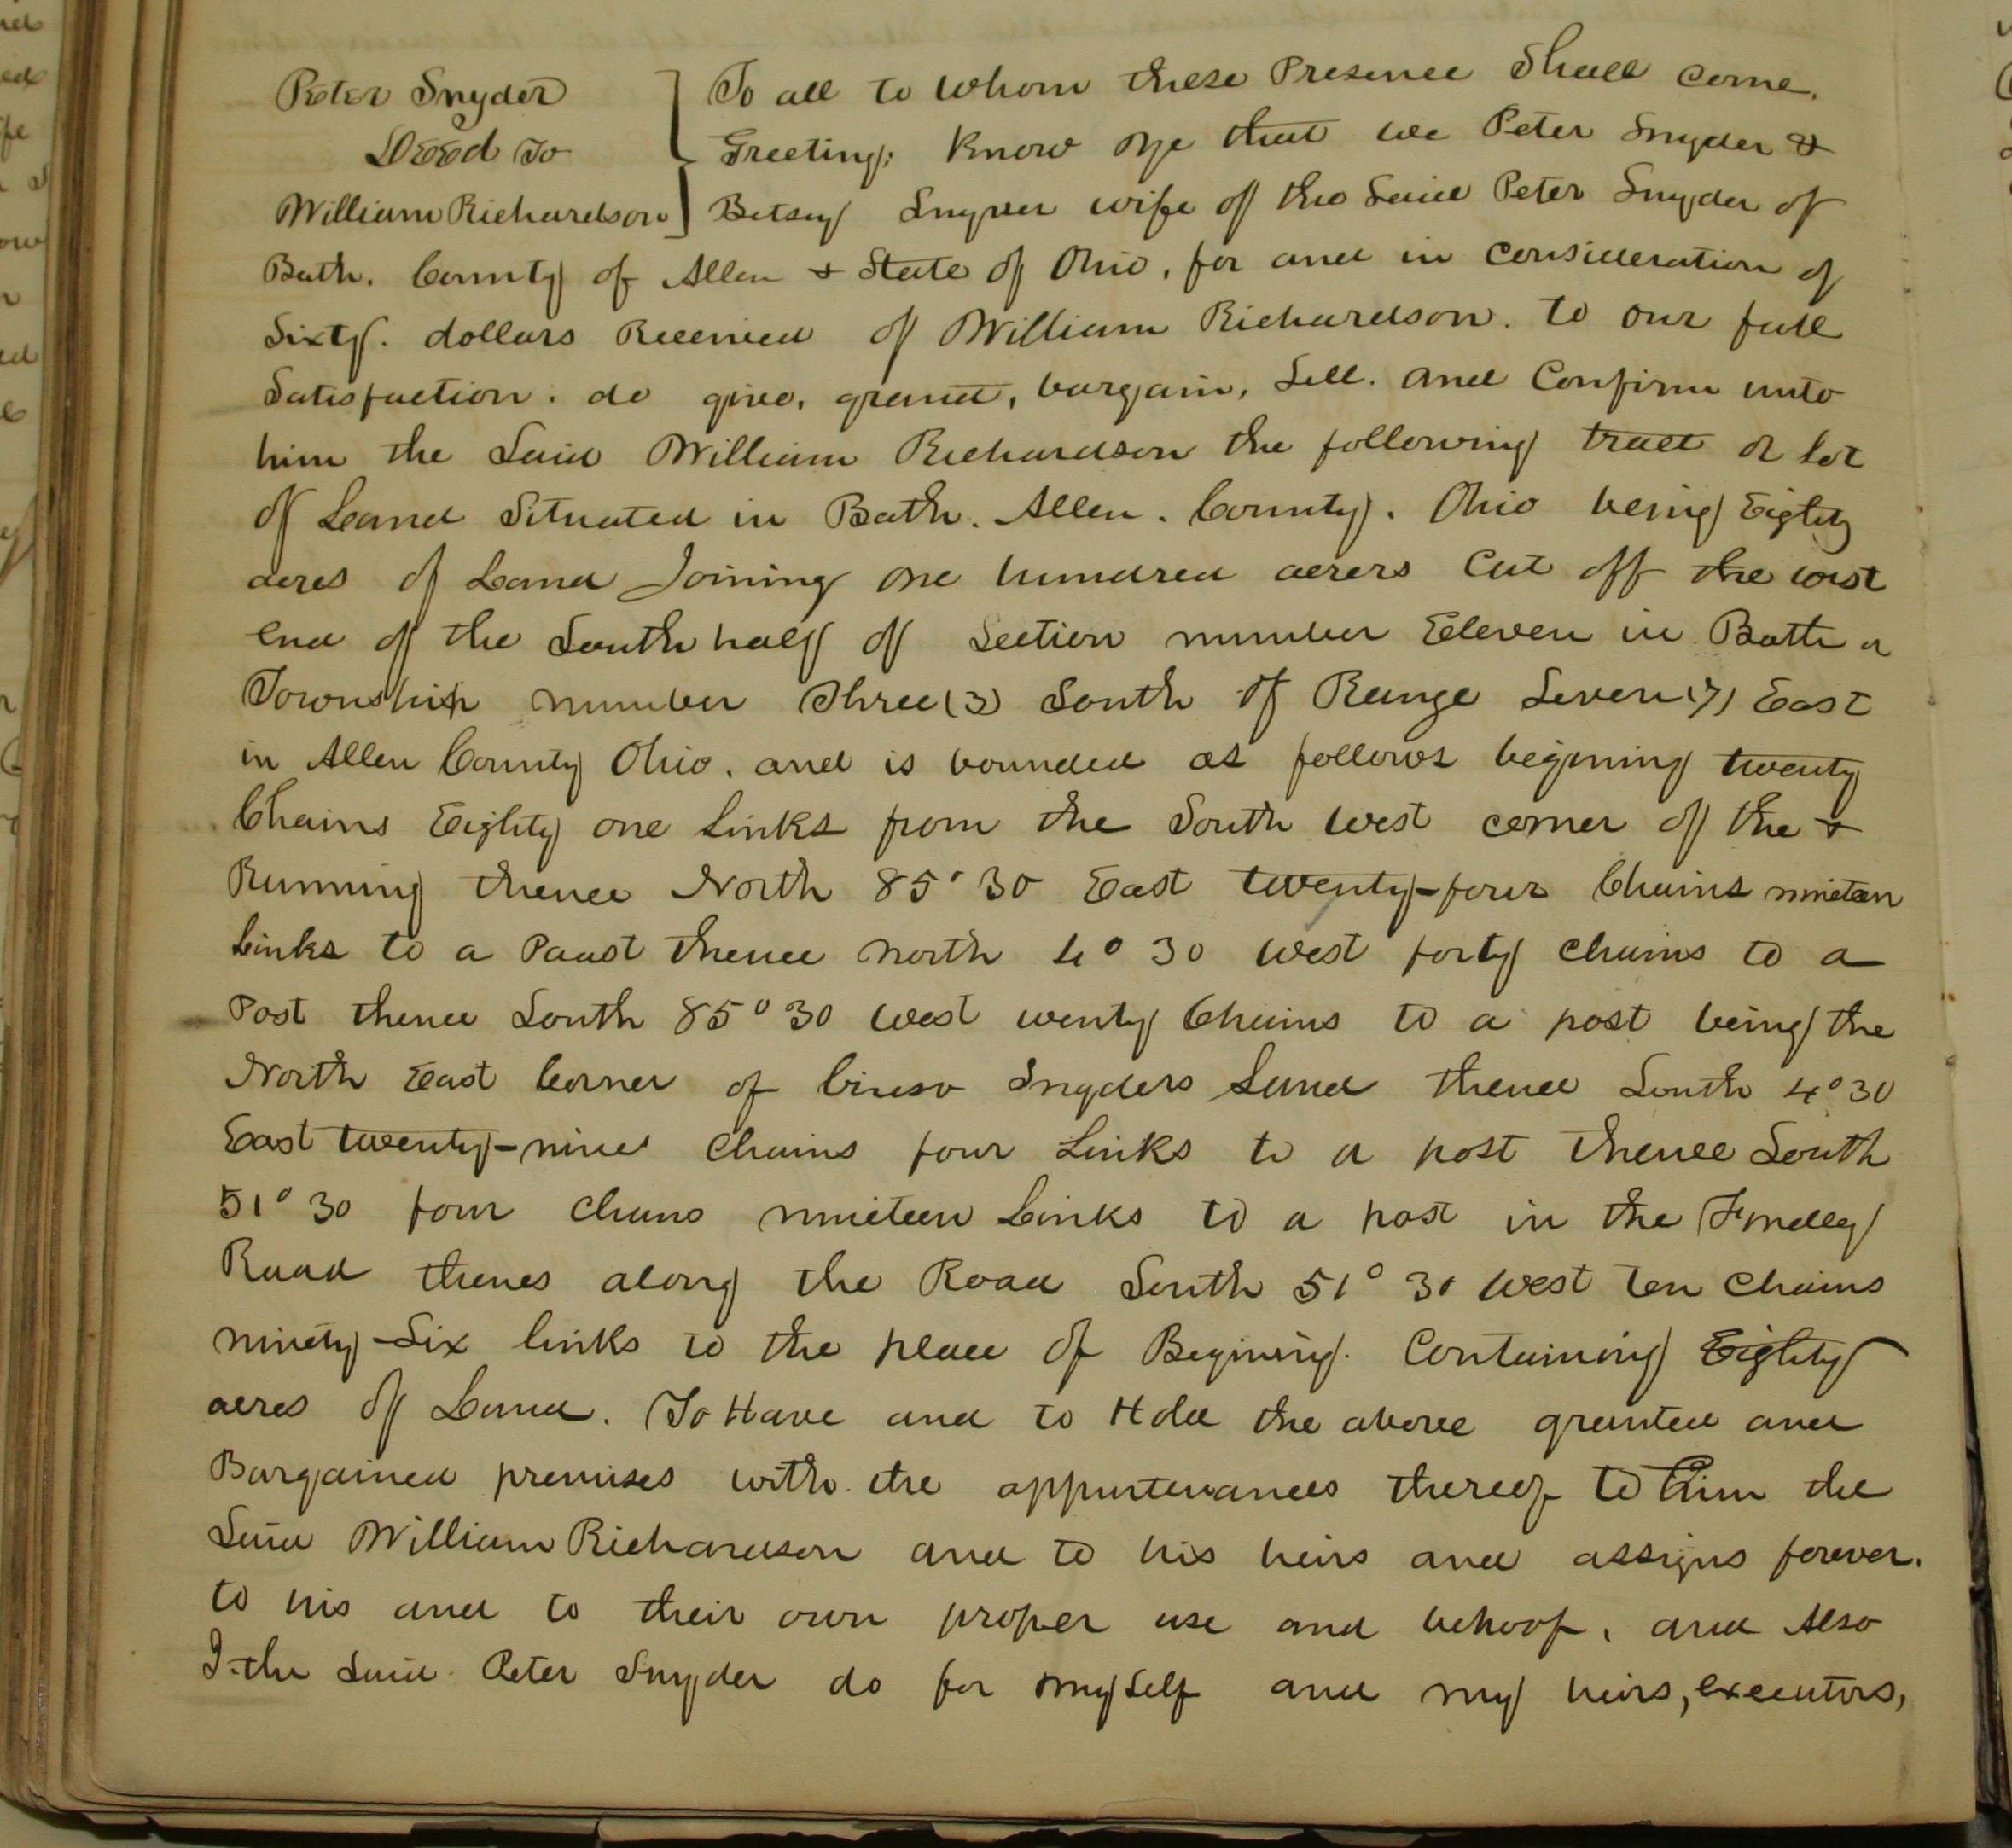 Peter Snyder
Deed To
William Richardson
To all to whom these Presence Shall come.
Greeting; Know ye that we Peter Snyder &
Betsey Snyder wife of the Said Peter Snyder of
Bath. County of Allen & State of Ohio, for and in consideration of
Sixty. dollars Received of William Richardson. to our full
Satisfaction. do give, grant, bargain, Sell. and Confirm unto
him the Said William Richardson the following tract or lot
of Land Situated in Bath. Allen. County. Ohio being Eighty
acres of Land Joining one hundred acrers Cut off the west
End of the South half of Section number Eleven in Bath
Township number Three (3) South of Range Seven (7) East
in Allen County Ohio. and is bounded as follows begining twenty
Chains Eighty one links from the South west corner of the &
Running thence North 85° 30 East twenty-four Chains nineteen
links to a Paust thence north 4° 30 west forty chains to a
Post thence South 85° 30 west wenty Chains to a post being the
North East Corner of Snyders Land thence South 4° 30
East twenty-nine Chains four Links to a post thence South
51° 30 four chans nineteen Links to a post in the Findley
Road thenes along the Road South 51° 30 West ten Chains
ninety-Six links to the place of Begining. Containing Eighty
acres of Land. To Have and to Hold the above granted and
Bargained premises with the appurtenances thereof to him the
Said William Richardson and to his heirs and assigns forever.
to his and to their own proper use and behoof, and Also
I the Said Peter Snyder do for my Self and my heirs, executors,